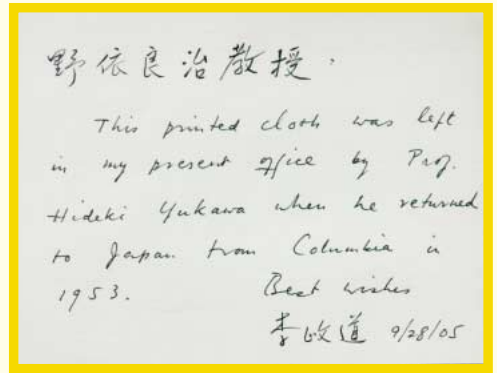 野依良治教授.
This printed cloth was left
in my present office by Prof.
Hideki Yukawa when he returned
to Japan from Columbia in
1953. Best wishes
李政道 9/28/05